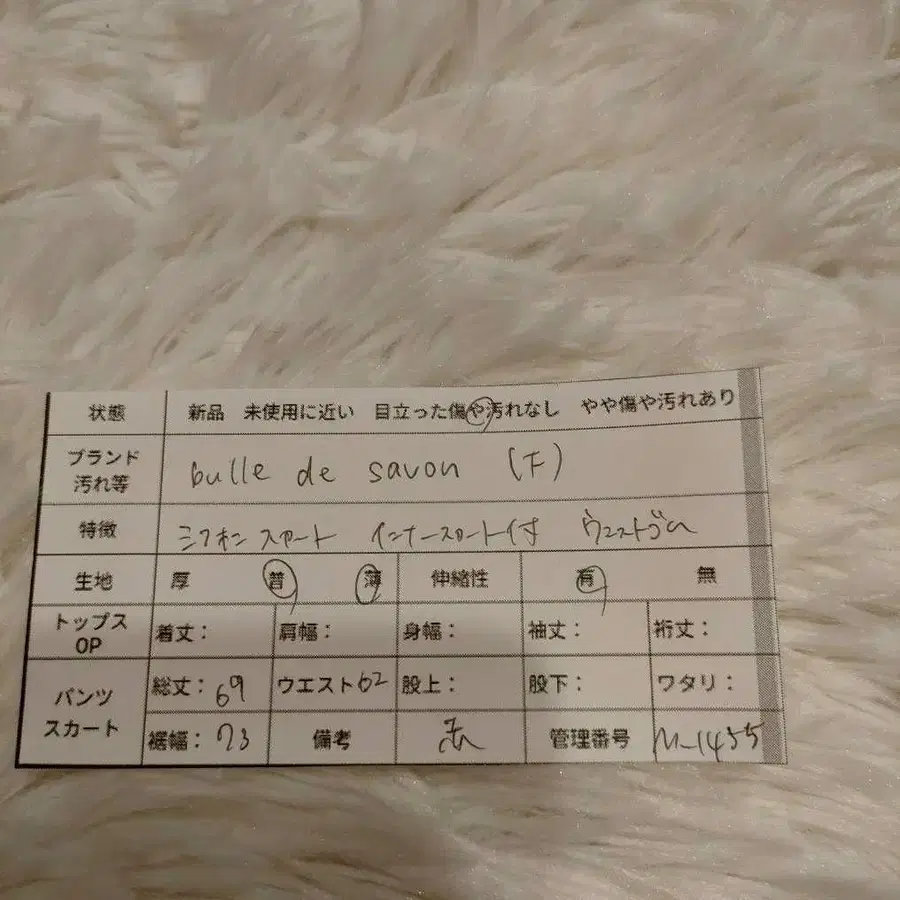 状態 新品 未使用に近い 目立った傷や汚れなし やや傷や汚れあり
ブランド
汚れ等
bulle de savon (F)
特徴 シフォンスカート インナースカート付 ウエストゴム
生地 厚 普 薄 伸縮性 有 無
トップス
OP
着丈: 肩幅: 身幅: 袖丈: 裄丈:
パンツ
スカート
総丈:69 ウエスト62 股上: 股下: ワタリ:
裾幅:73 備考 管理番号 M-1455